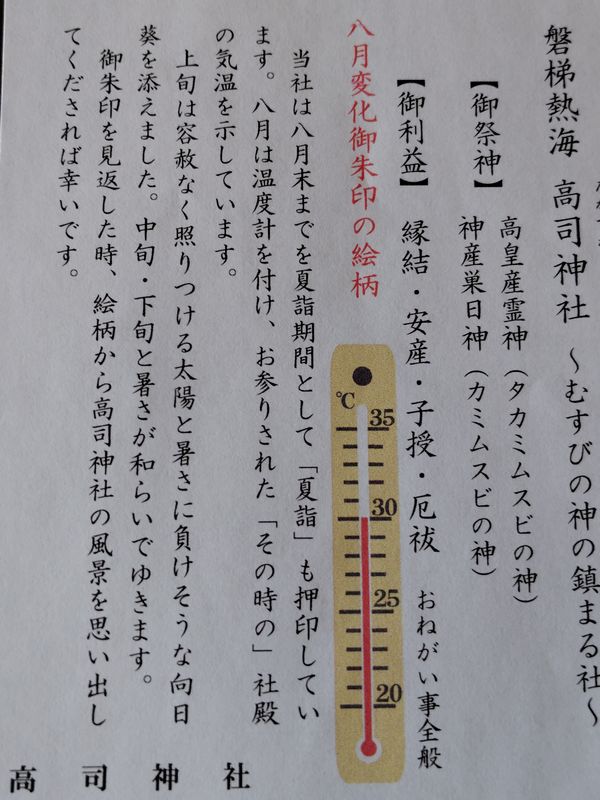 磐梯熱海 高司神社 ～むすびの神の鎮まる社～
【御祭神】 高皇産霊神（タカミムスビの神）
神産巣日神（カミムスビの神）
【御利益】 縁結・安産・子授・厄祓 おねがい事全般
八月変化御朱印の絵柄
℃
35
30
25
20
当社は八月末までを夏詣期間として「夏詣」も押印してい
ます。八月は温度計を付け、お参りされた「その時の」社殿
の気温を示しています。
上旬は容赦なく照りつける太陽と暑さに負けそうな向日
葵を添えました。中旬・下旬と暑さが和らいでゆきます。
御朱印を見返した時、絵柄から高司神社の風景を思い出し
てくだされば幸いです。
高司神社